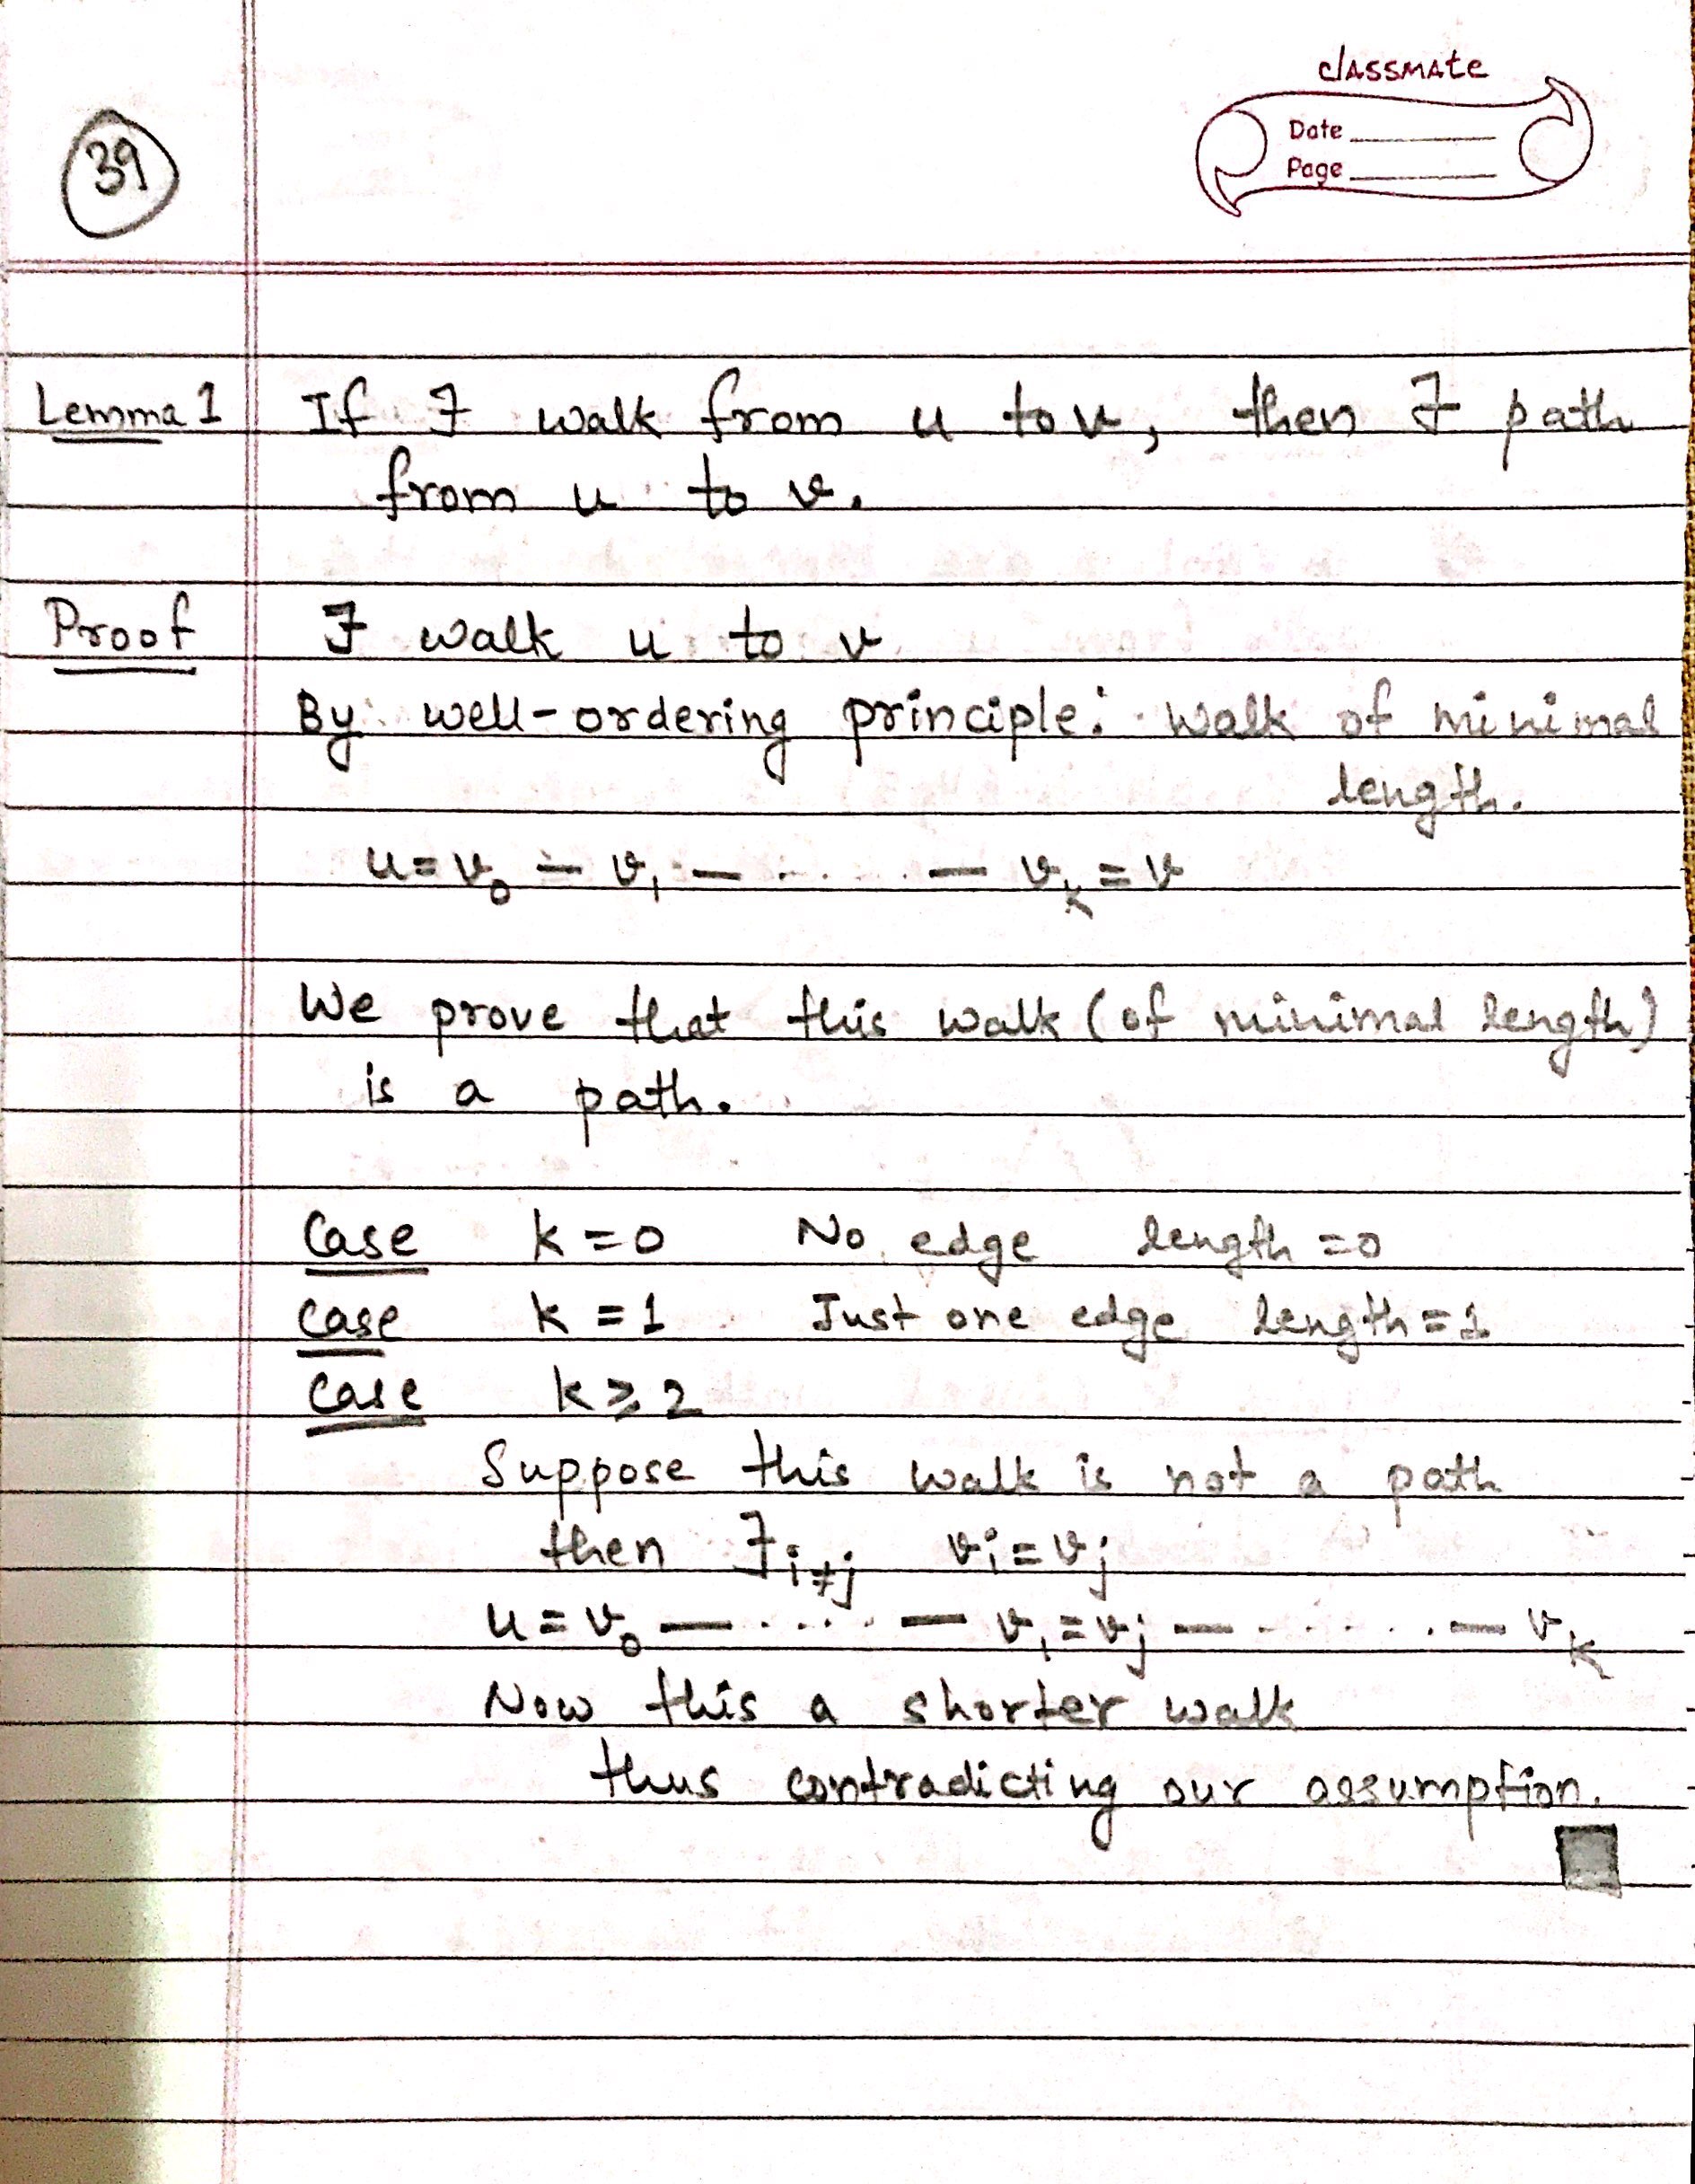 classmate
Date
Page
39
Lemma 1 If ∃ walk from u to v, then ∃ path
from u to v.
Proof ∃ walk u to v
By well-ordering principle: walk of minimal
length.
u = v₀ — v₁ — ..... — vₖ = v
We prove that this walk (of minimal length)
is a path.
Case k = 0 No edge length = 0
case k = 1 Just one edge length = 1
case k ⩾ 2
Suppose this walk is not a path
then ∃ i≠j vi = vj
u = v₀ — ..... — vᵢ = vj — ...... — vₖ
Now this a shorter walk
thus contradicting our assumption.